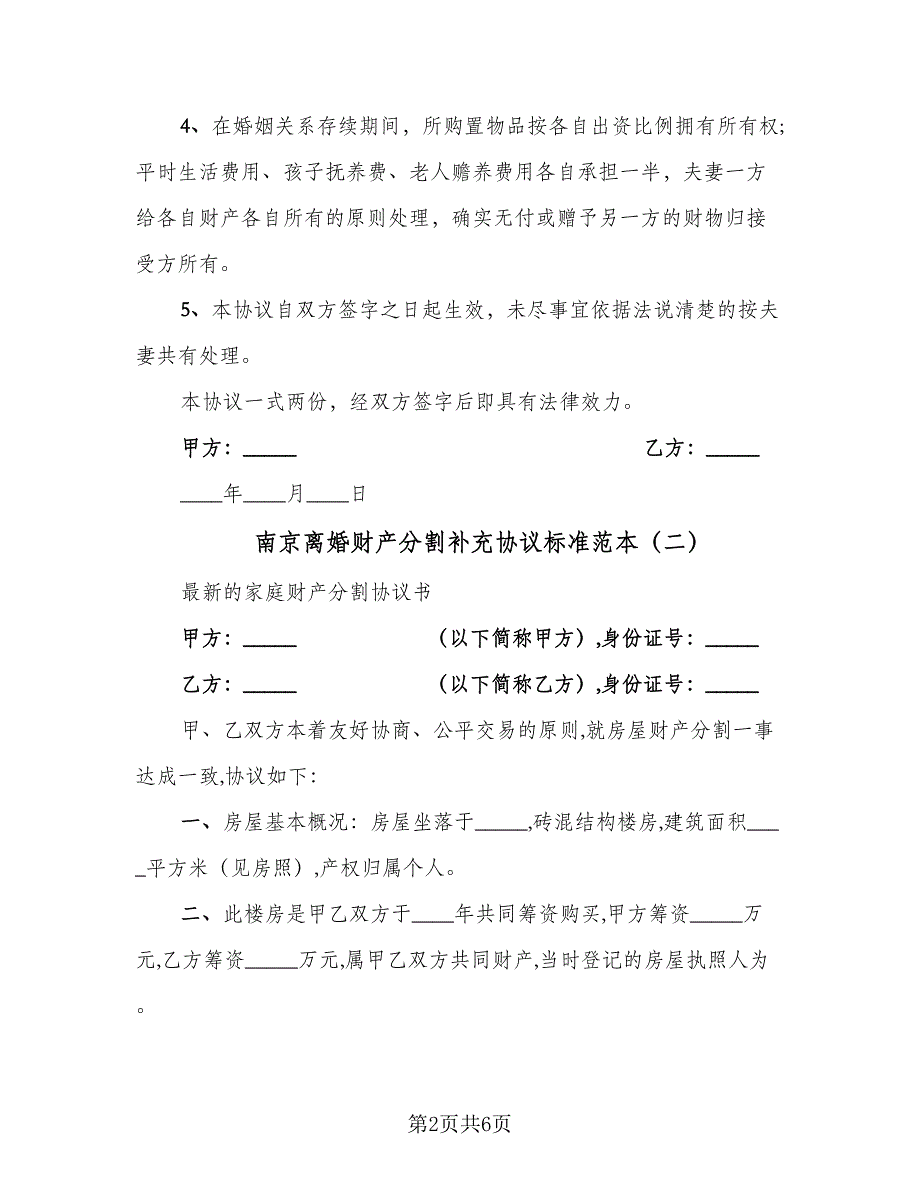 4、在婚姻关系存续期间，所购置物品按各自出资比例拥有所有权;
平时生活费用、孩子抚养费、老人赡养费用各自承担一半，夫妻一方
给各自财产各自所有的原则处理，确实无付或赠予另一方的财物归接
受方所有。
5、本协议自双方签字之日起生效，未尽事宜依据法说清楚的按夫
妻共有处理。
本协议一式两份，经双方签字后即具有法律效力。
甲方：_____ 乙方：_____
____年____月____日
南京离婚财产分割补充协议标准范本（二）
最新的家庭财产分割协议书
甲方：_____ （以下简称甲方）,身份证号：_____
乙方：_____ （以下简称乙方）,身份证号：_____
甲、乙双方本着友好协商、公平交易的原则,就房屋财产分割一事
达成一致,协议如下：
一、房屋基本概况：房屋坐落于_____,砖混结构楼房,建筑面积___
_平方米（见房照）,产权归属个人。
二、此楼房是甲乙双方于____年共同筹资购买,甲方筹资_____万
元,乙方筹资_____万元,属甲乙双方共同财产,当时登记的房屋执照人为
。
第2页共6页